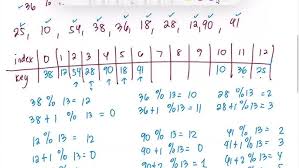 36 %
25, 10, 54, 38, 36, 18, 28, 12, 90, 41
index 0 1 2 3 4 5 6 7 8 9 10 11 12
key 38 12 54 28 90 18 41 10 36 25
38 % 13 = 12 36 % 13 = 10 28 % 13 = 2
38 + 1 % 13 = 0 36 + 1 % 13 = 11 28 + 1 % 13 = 3
12 % 13 = 12 90 % 13 = 12 41 % 13 = 2
12 + 1 % 13 = 0 90 + 1 % 13 = 0 41 + 1 % 13 = 3